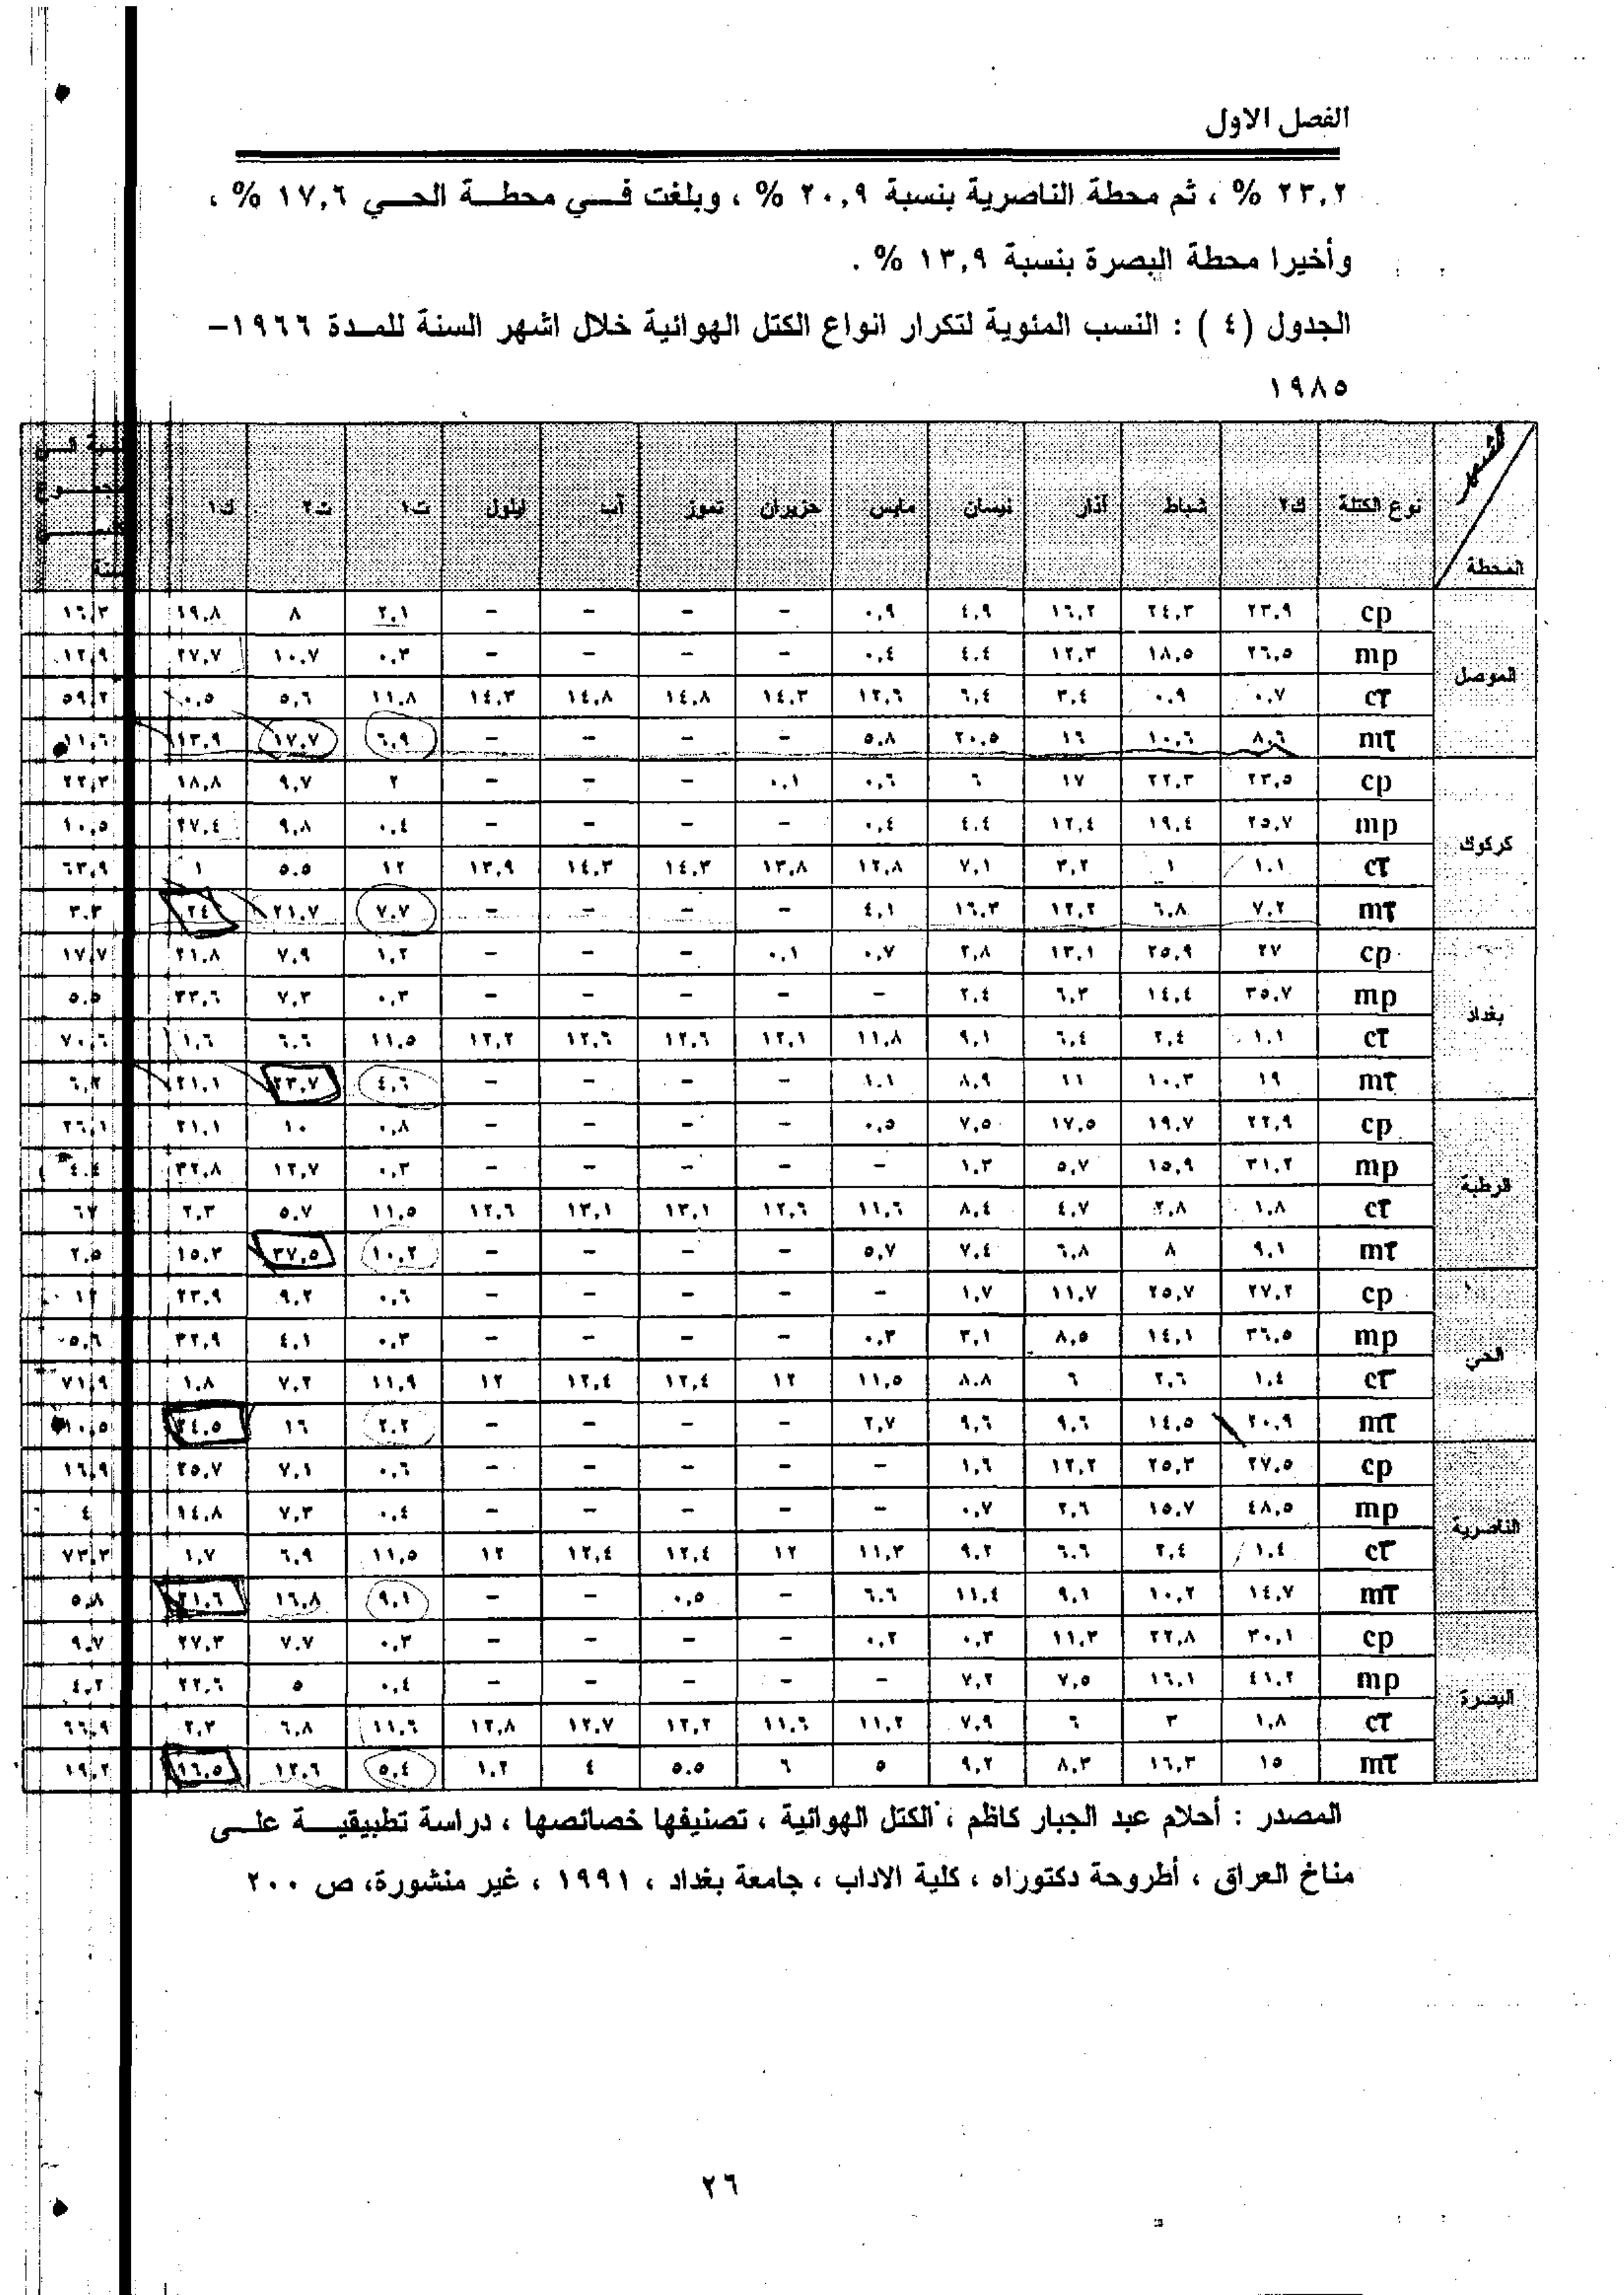 الفصل الاول
٢٣,٢ % ، ثم محطة الناصرية بنسبة ٢٠,٩ % ، وبلغت في محطة الحي ١٧,٦ % ،
وأخيرا محطة البصرة بنسبة ١٣,٩ % .
الجدول (٤ ) : النسب المئوية لتكرار انواع الكتل الهوائية خلال اشهر السنة للمدة ١٩٦٦–
١٩٨٥
المحطة نوع الكتلة ك٢ شباط آذار نيسان مايس حزيران تموز آب ايلول ت١ ت٢ ك١
الموصل
cp ٢٣,٩ ٢٤,٣ ١٦,٢ ٤,٩ ٠,٩ – – – – ٢,١ ٨ ١٩,٨ ١٦,٣
mp ٢٦,٥ ١٨,٥ ١٢,٣ ٤,٤ ٠,٤ – – – – ٠,٣ ١٠,٧ ٢٧,٧ ١٢,٩
cT ٠,٧ ٠,٩ ٣,٤ ٦,٤ ١٢,٦ ١٤,٣ ١٤,٨ ١٤,٨ ١٤,٣ ١١,٨ ٥,٦ ٠,٥ ٥٩,٢
mT ٨,٦ ١٠,٦ ١٦ ٢٠,٥ ٥,٨ – – – – ٦,٩ ١٧,٧ ١٣,٩ ١١,٦
كركوك
cp ٢٣,٥ ٢٢,٣ ١٧ ٦ ٠,٦ ٠,١ – – – ٢ ٩,٧ ١٨,٨ ٢٢,٣
mp ٢٥,٧ ١٩,٤ ١٢,٤ ٤,٤ ٠,٤ – – – – ٠,٤ ٩,٨ ٢٧,٤ ١٠,٥
cT ١,١ ١ ٣,٢ ٧,١ ١٢,٨ ١٣,٨ ١٤,٣ ١٤,٣ ١٣,٩ ١٢ ٥,٥ ١ ٦٣,٩
mT ٧,٢ ٦,٨ ١٢,٢ ١٦,٣ ٤,١ – – – – ٧,٧ ٢١,٧ ٢٤ ٣,٣
بغداد
cp ٢٧ ٢٥,٩ ١٣,١ ٢,٨ ٠,٧ ٠,١ – – – ١,٢ ٧,٩ ٢١,٨ ١٧,٧
mp ٣٥,٧ ١٤,٤ ٦,٣ ٢,٤ – – – – – ٠,٣ ٧,٣ ٣٣,٦ ٥,٥
cT ١,١ ٢,٤ ٦,٤ ٩,١ ١١,٨ ١٢,١ ١٢,٦ ١٢,٦ ١٢,٢ ١١,٥ ٦,٦ ١,٦ ٧٠,٦
mT ١٩ ١٠,٣ ١١ ٨,٩ ١,١ – – – – ٤,٦ ٢٣,٧ ٢١,١ ٦,٢
الرطبة
cp ٢٢,٩ ١٩,٧ ١٧,٥ ٧,٥ ٠,٥ – – – – ٠,٨ ١٠ ٢١,١ ٢٦,١
mp ٣١,٢ ١٥,٩ ٥,٧ ١,٣ – – – – – ٠,٣ ١٢,٧ ٣٢,٨ ٤,٤
cT ١,٨ ٢,٨ ٤,٧ ٨,٤ ١١,٦ ١٢,٦ ١٣,١ ١٣,١ ١٢,٦ ١١,٥ ٥,٧ ٢,٣ ٦٧
mT ٩,١ ٨ ٦,٨ ٧,٤ ٥,٧ – – – – ١٠,٢ ٣٧,٥ ١٥,٣ ٢,٥
الحي
cp ٢٧,٢ ٢٥,٧ ١١,٧ ١,٧ – – – – – ٠,٦ ٩,٢ ٢٣,٩ ١٢
mp ٣٦,٥ ١٤,١ ٨,٥ ٣,١ ٠,٣ – – – – ٠,٣ ٤,١ ٣٢,٩ ٥,٦
cT ١,٤ ٢,٦ ٦ ٨,٨ ١١,٥ ١٢ ١٢,٤ ١٢,٤ ١٢ ١١,٩ ٧,٢ ١,٨ ٧١,٩
mT ٢٠,٩ ١٤,٥ ٩,٦ ٩,٦ ٢,٧ – – – – ٢,٢ ١٦ ٢٤,٥ ١٠,٥
الناصرية
cp ٢٧,٥ ٢٥,٣ ١٢,٢ ١,٦ – – – – – ٠,٦ ٧,١ ٢٥,٧ ١٦,٩
mp ٤٨,٥ ١٥,٧ ٢,٦ ٠,٧ – – – – – ٠,٤ ٧,٣ ١٤,٨ ٤
cT ١,٤ ٢,٤ ٦,٦ ٩,٢ ١١,٣ ١٢ ١٢,٤ ١٢,٤ ١٢ ١١,٥ ٦,٩ ١,٧ ٧٣,٣
mT ١٤,٧ ١٠,٢ ٩,١ ١١,٤ ٦,٦ – ٠,٥ – – ٩,١ ١٦,٨ ٢١,٦ ٥,٨
البصرة
cp ٣٠,١ ٢٢,٨ ١١,٣ ٠,٣ ٠,٢ – – – – ٠,٣ ٧,٧ ٢٧,٣ ٩,٧
mp ٤١,٢ ١٦,١ ٧,٥ ٧,٢ – – – – – ٠,٤ ٥ ٢٢,٦ ٤,٢
cT ١,٨ ٣ ٦ ٧,٩ ١١,٢ ١١,٦ ١٢,٢ ١٢,٧ ١٢,٨ ١١,٦ ٦,٨ ٢,٣ ٦٦,٩
mT ١٥ ١٦,٣ ٨,٣ ٩,٢ ٥ ٦ ٥,٥ ٤ ١,٢ ٥,٤ ١٢,٦ ١٦,٥ ١٩,٢
المصدر : أحلام عبد الجبار كاظم ، الكتل الهوائية ، تصنيفها خصائصها ، دراسة تطبيقية على
مناخ العراق ، أطروحة دكتوراه ، كلية الاداب ، جامعة بغداد ، ١٩٩١ ، غير منشورة، ص ٢٠٠
٢٦